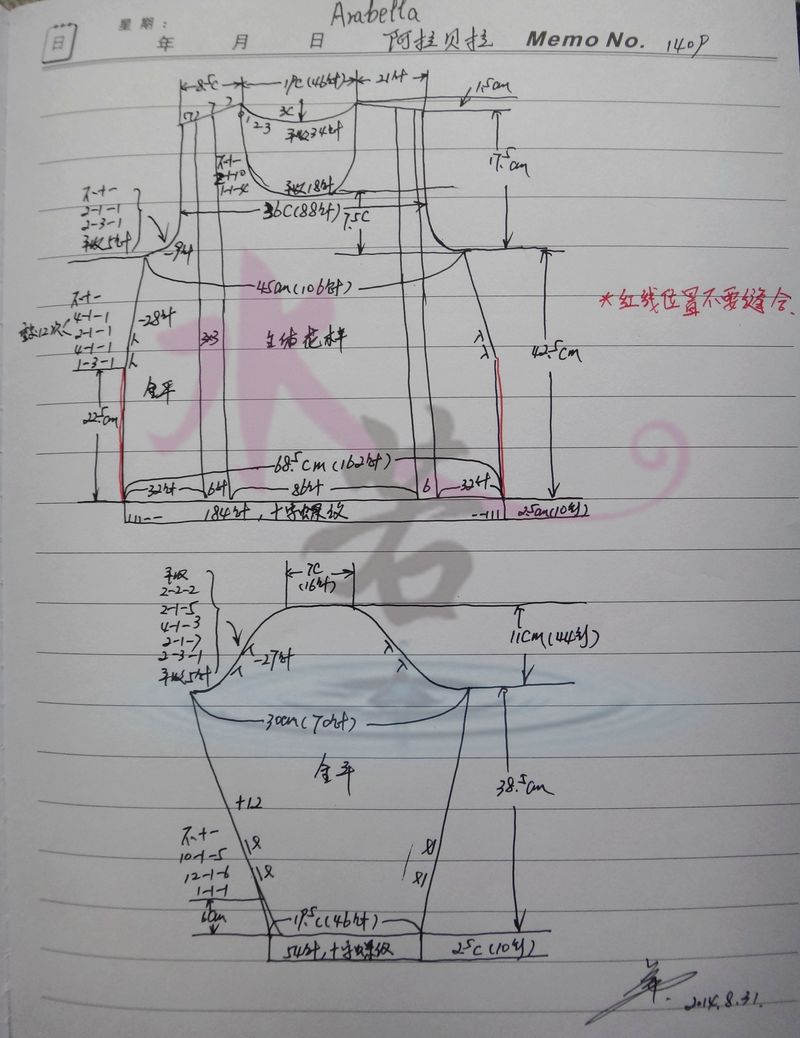 Arabella
星期:
日 年 月 日 阿拉贝拉 Memo No. 140P
8.5C 19C(46针) 21针
1.5cm
3C
1-2-3
平收34针
17.5cm
不+-
2-1-10
1-1-4
平收18针
36C(88针)
7.5C
不+-
2-1-1
2-3-1
平收5针
-9针
45cm(106针)
*红线位置不要缝合.
不+-
4-1-1
2-1-1
4-1-1
1-3-1
重复12次
-28针
3×3
全体花样
42.5cm
全平
22.5cm
68.5cm(162针)
32针 6针 86针 6 32针
184针,十字螺纹 2.5cm(10行)
水若
7C
(16针)
平收
2-2-2
2-1-5
4-1-3
2-1-7
2-3-1
平收5针
-27针
11cm(44行)
30cm(70针)
全平
38.5cm
+12
不+-
10-1-5
12-1-6
1-1-1
6cm
19.5C(46针)
54针,十字螺纹 2.5C(10行)
2014.8.31.